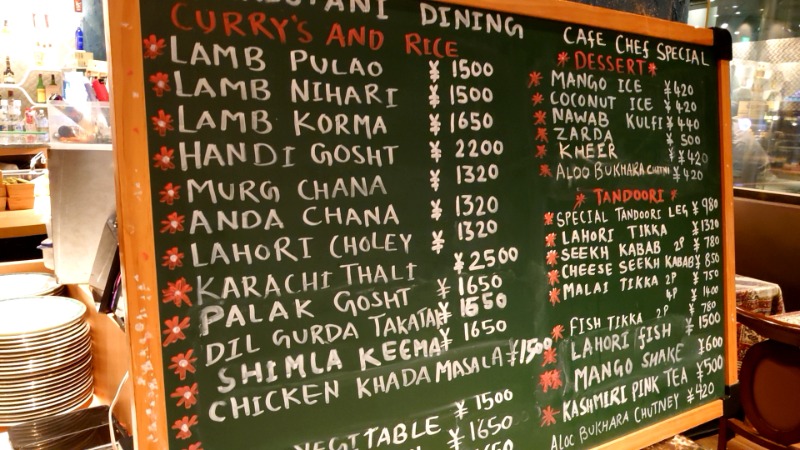 DINING
CURRY'S AND RICE
LAMB PULAO ¥ 1500
LAMB NIHARI ¥ 1500
LAMB KORMA ¥ 1650
HANDI GOSHT ¥ 2200
MURG CHANA ¥ 1320
ANDA CHANA ¥ 1320
LAHORI CHOLEY ¥ 1320
KARACHI THALI ¥ 2500
PALAK GOSHT ¥ 1650
DIL GURDA TAKATAK ¥ 1650
SHIMLA KEEMA ¥ 1650
CHICKEN KHADA MASALA ¥1500
VEGITABLE ¥ 1500
¥ 1650
CAFE CHEF SPECIAL
DESSERT
MANGO ICE ¥ 420
COCONUT ICE ¥ 420
NAWAB KULFI ¥ 440
ZARDA ¥ 500
KHEER ¥ 420
ALOO BUKHARA CHUTNI ¥ 420
TANDOORI
SPECIAL TANDOORI LEG ¥ 980
LAHORI TIKKA ¥ 1320
SEEKH KABAB 2P ¥ 780
CHEESE SEEKH KABAB ¥ 850
MALAI TIKKA 2P ¥ 750
4P ¥ 1400
FISH TIKKA 2P ¥ 780
LAHORI FISH ¥ 1500
MANGO SHAKE ¥600
KASHMIRI PINK TEA ¥500
ALOC BUKHARA CHUTNEY ¥420